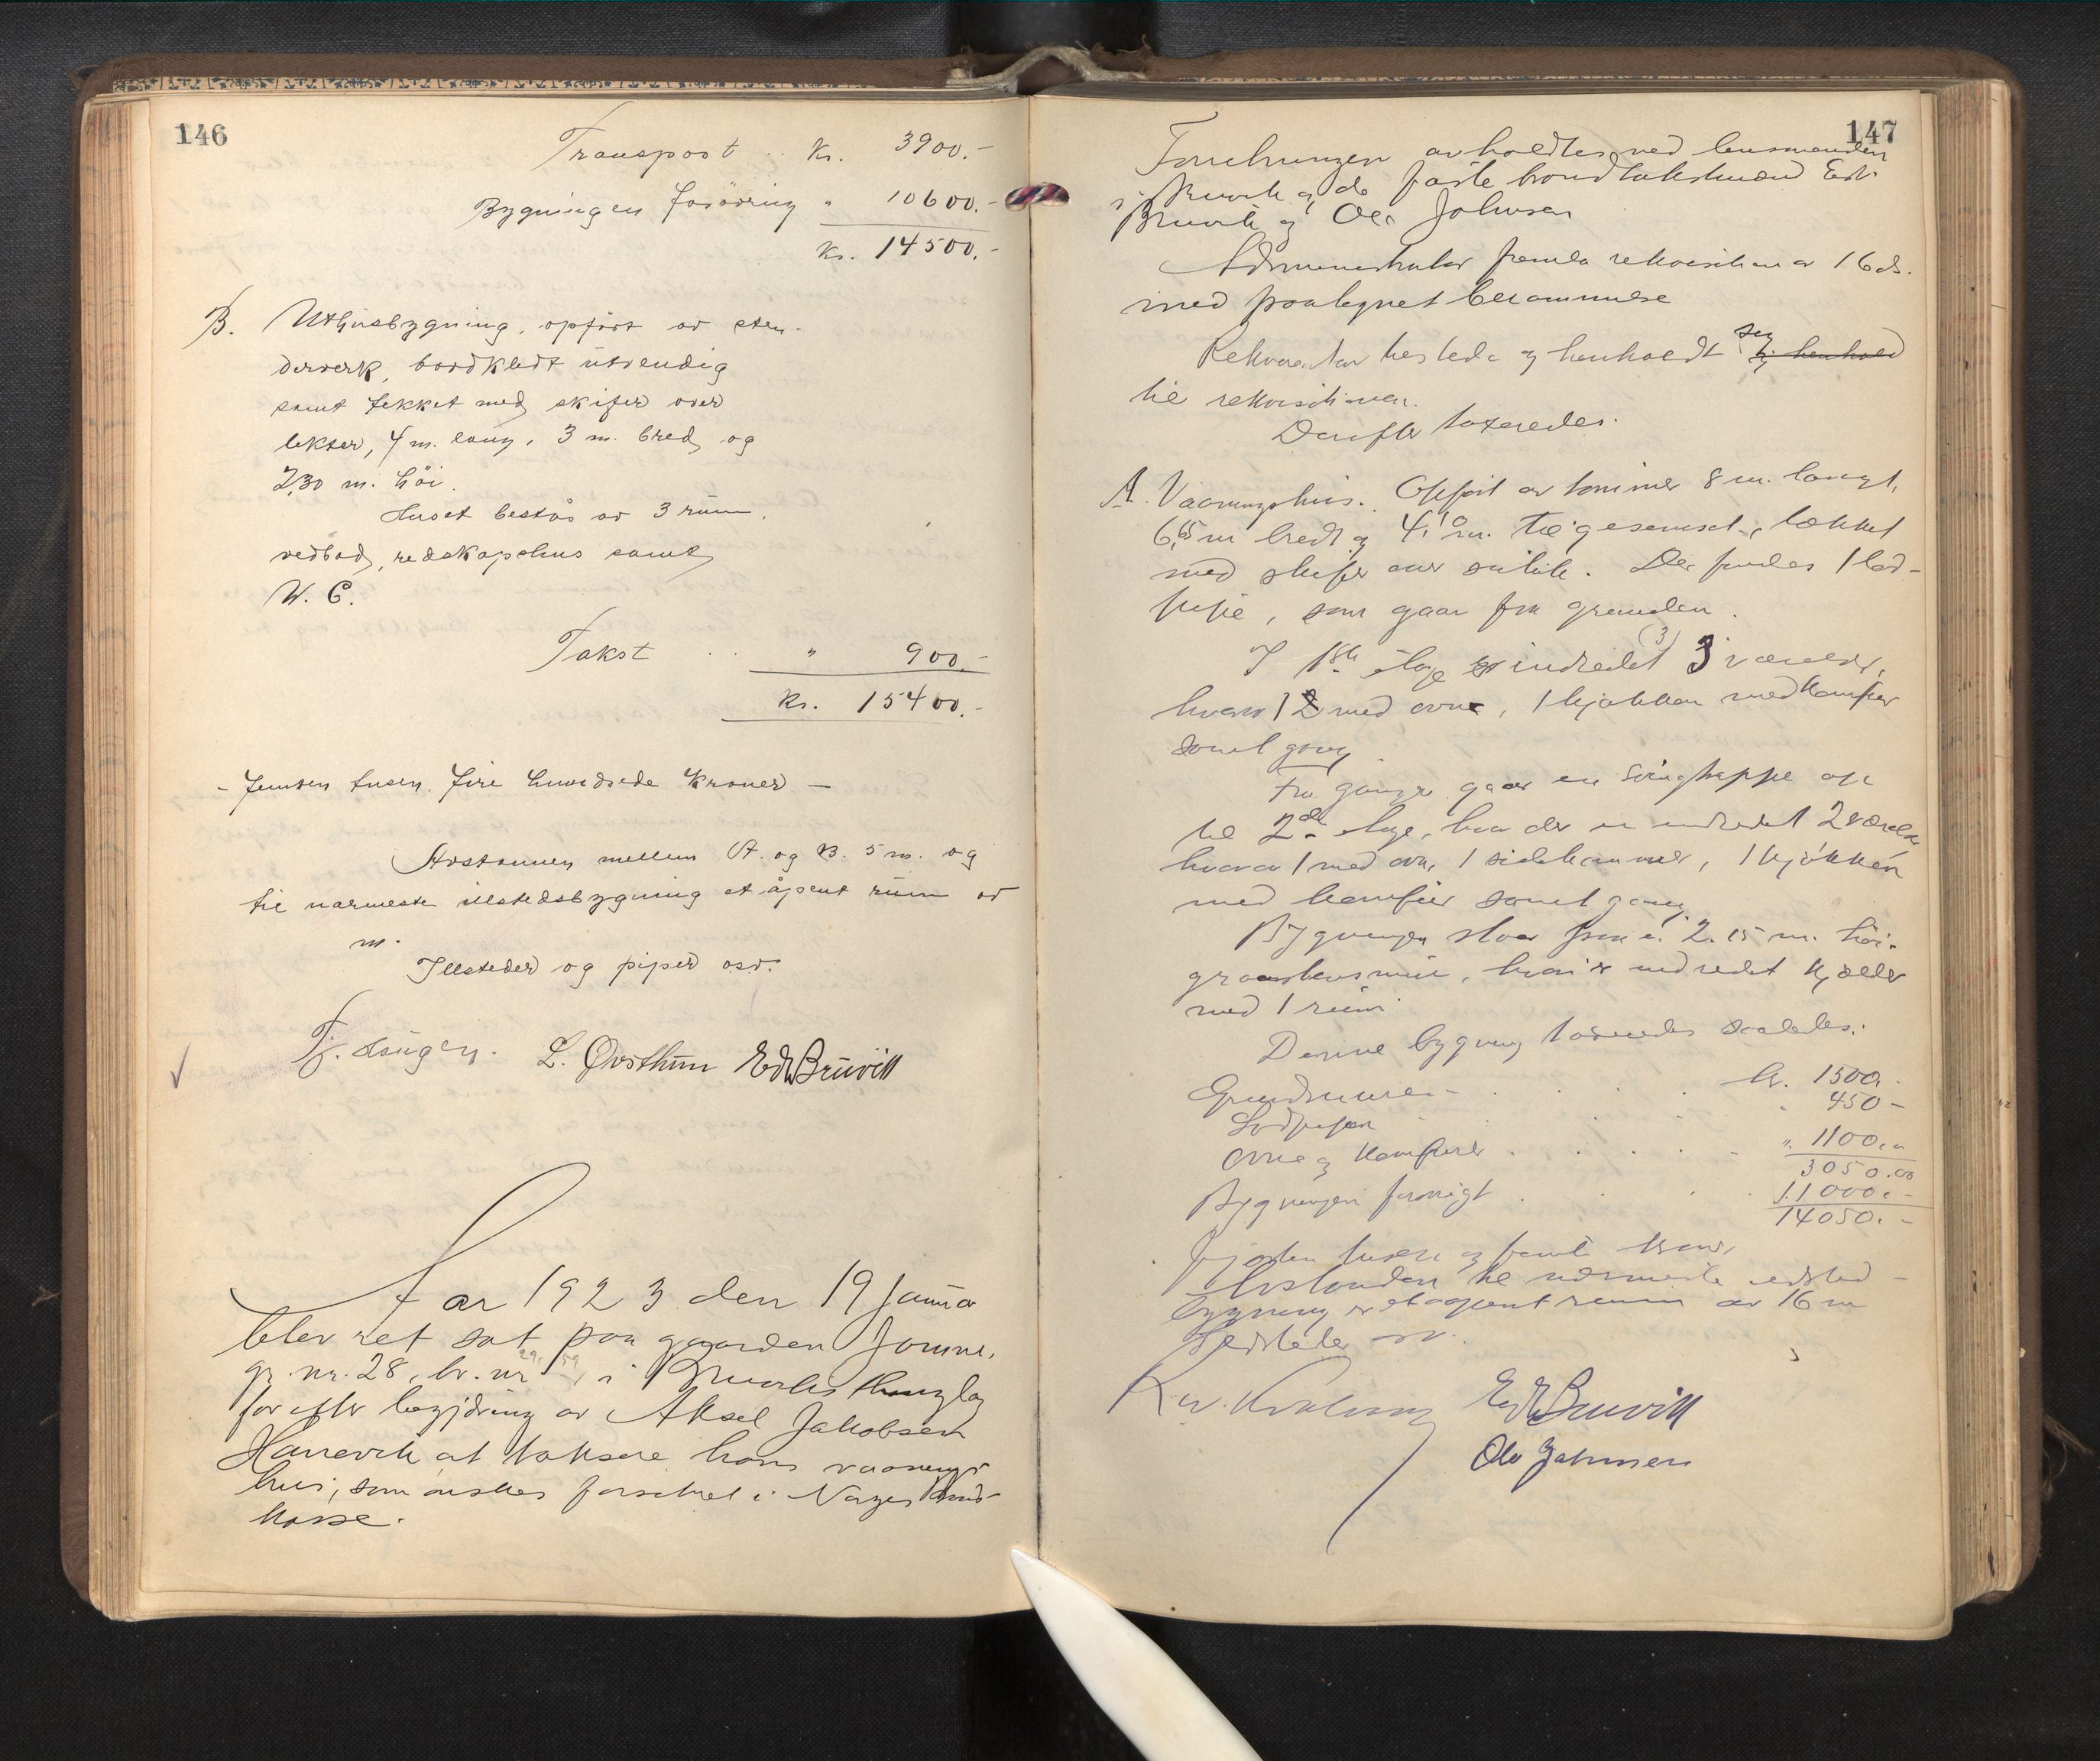 146
Transport .. Kr. 3900.-
Bygningen forövrig " 10600.-
Kr. 14500.-
B. Uthusbygning, opført av sten-
derverk, bordkledt utvendig
samt tekket med skifer over
lekter, 4 m. lang, 3 m. bred og
2,30 m. höi.
Huset består av 3 rum,
vedbod, redskapshus samt
W. C.
Takst .. " 900.-
Kr. 15400.-
- Femten tusen fire hundrede Kroner -
Avstannen mellem A. og B. 5 m. og
til nærmeste ildstedsbygning et åpent rum av
m.
Ildsteder og piper osv.
L. Qvisthun Edv Bruvik
Aar 1923 den 19 Janua
blev ret sat paa gaarden
gr. nr. 28, br. nr 29, 59, i Bruviks thinglag
for efter begjæring av Aksel Jakobsen
at taksere hans vaanings
hus, som ønskes forsikret i Norges Brand-
kasse.
147
Forretningen avholdtes ved lensmanden
i Bruvik og de faste brandtakstmænd Edv.
Bruvik og Ole Johnsen
Administrator fremla rekvisition av 16 ds.
med paategnet berammelse
Rekvirenten tilstede og henholdt seg
til rekvisitionen.
Derefter taxeredes.
A. Vaaningshus. Opført av tømmer 8 m. langt,
6,65 m bredt og 4,10 m. til gesimset, tækket
med skifer over sutak. Der findes 1 lod-
pipe, som gaar fra grunden.
I 1ste etage er indredet (3) 3 værelser,
hvorav 1 med ovne, 1 kjøkken med komfur
samt gang
Fra gangen gaar en svingtrappe op
til 2den etage, hvor der er indredet 2 værelser
hvorav 1 med ovn, 1 sidekammer, 1 kjøkken
med komfur samt gang.
Bygningen staar paa en 2.15 m. höi
graastensmur, hvori er indredet kjælder
med 1 rum
Denne bygning taxeredes saaledes:
Grundmuren - . . . kr. 1500.-
Lodpipen . . . " 450 -
Ovne og Komfurer . . . . " 1100.00
3050.00
Bygningen forøvrigt . . . 11000.-
14050.-
fjorten tusen og femti kroner,
Avstanden til nærmeste ildsted-
bygning er et aapent rum av 16 m
Ildsteder osv.
Edv Bruvik
Ole Johnsen